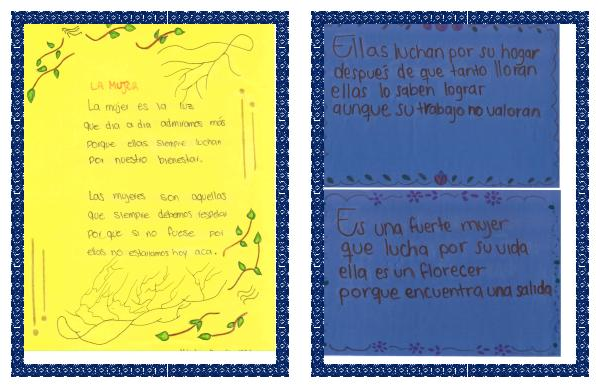 LA MUJER
La mujer es la luz
que dia a dia admiramos más
porque ellas siempre luchan
por nuestro bienestar.
Las mujeres son aquellas
que siempre debemos respetar
porque si no fuese por
ellas no estariamos hoy aca.
Ellas luchan por su hogar
después de que tanto lloran
ellas lo saben lograr
aunque su trabajo no valoran
Es una fuerte mujer
que lucha por su vida
ella es un florecer
porque encuentra una salida